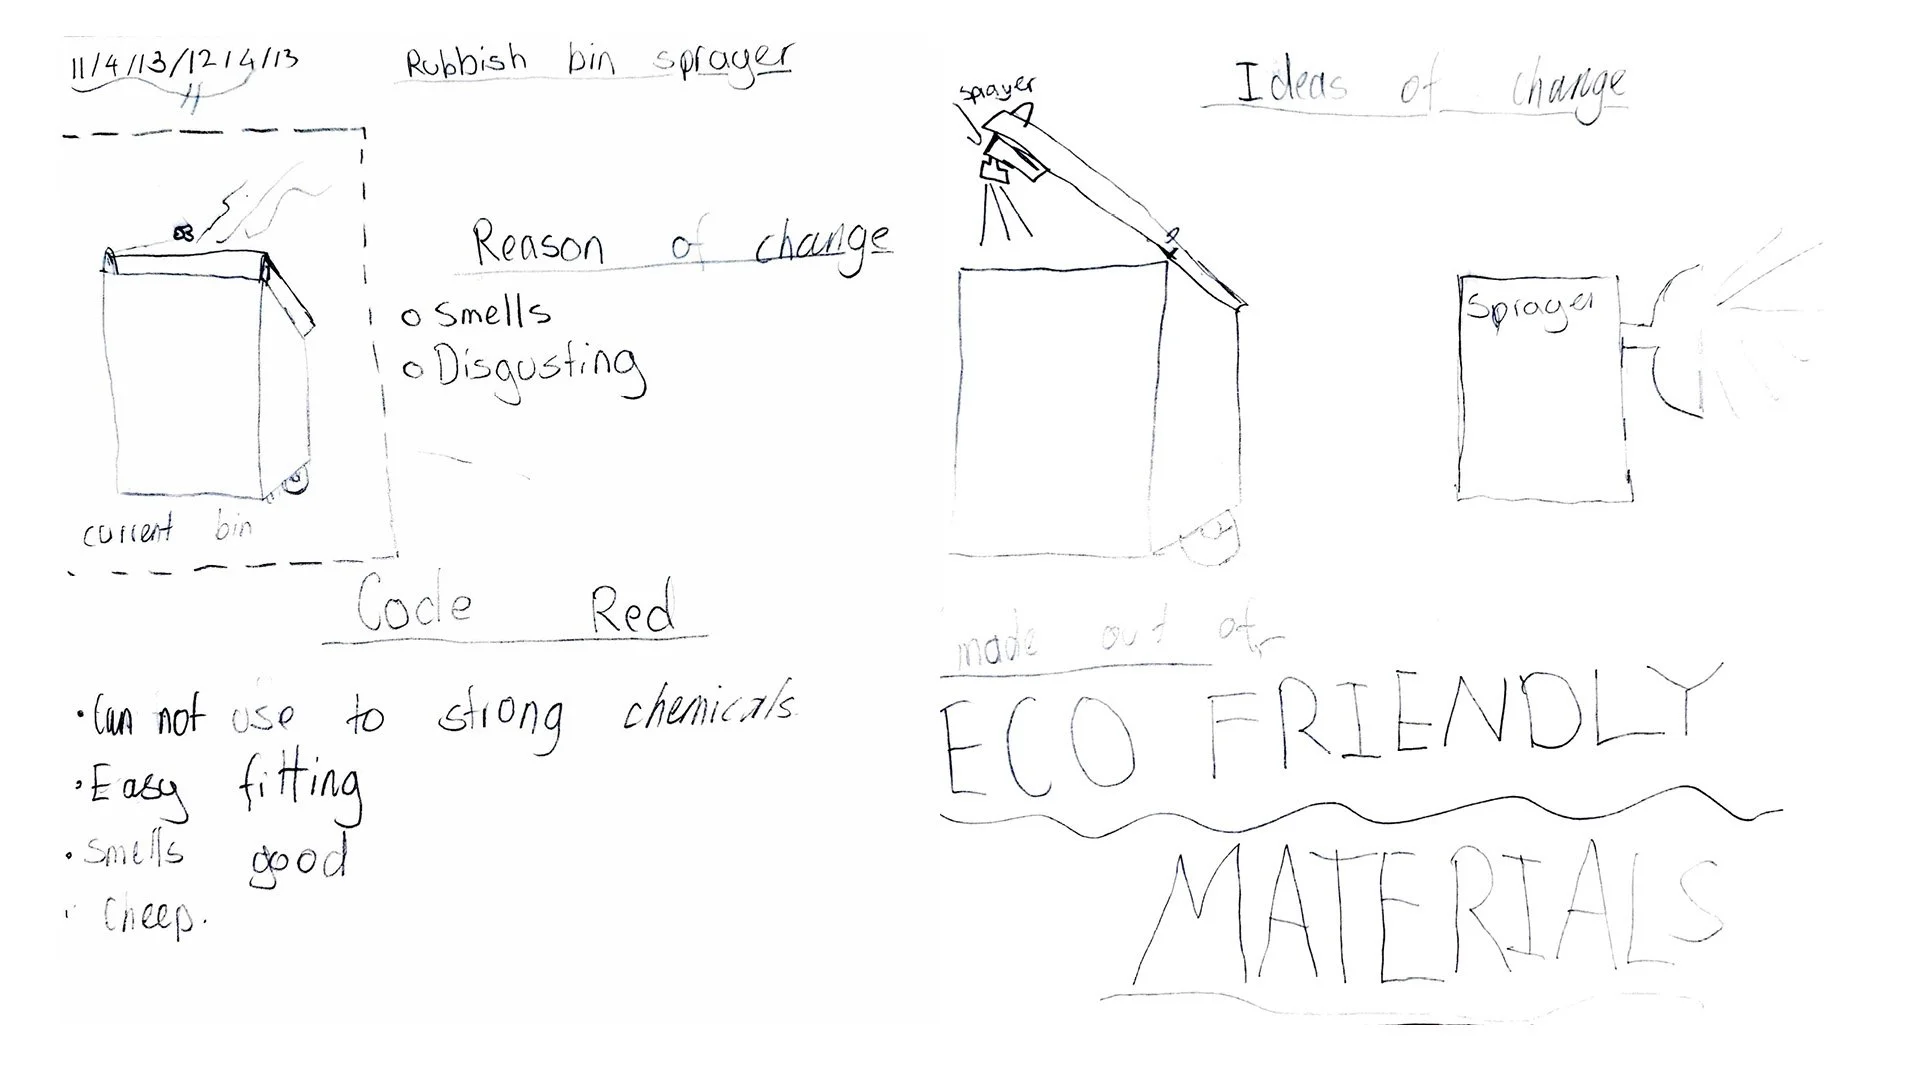 11/4/13/12/4/13
Rubbish bin sprayer
Reason of change
o Smells
o Disgusting
current bin
Code Red
• Can not use to strong chemicals
• Easy fitting
• Smells good
• Cheep.
Ideas of change
sprayer
Sprayer
made out of
ECO FRIENDLY
MATERIALS